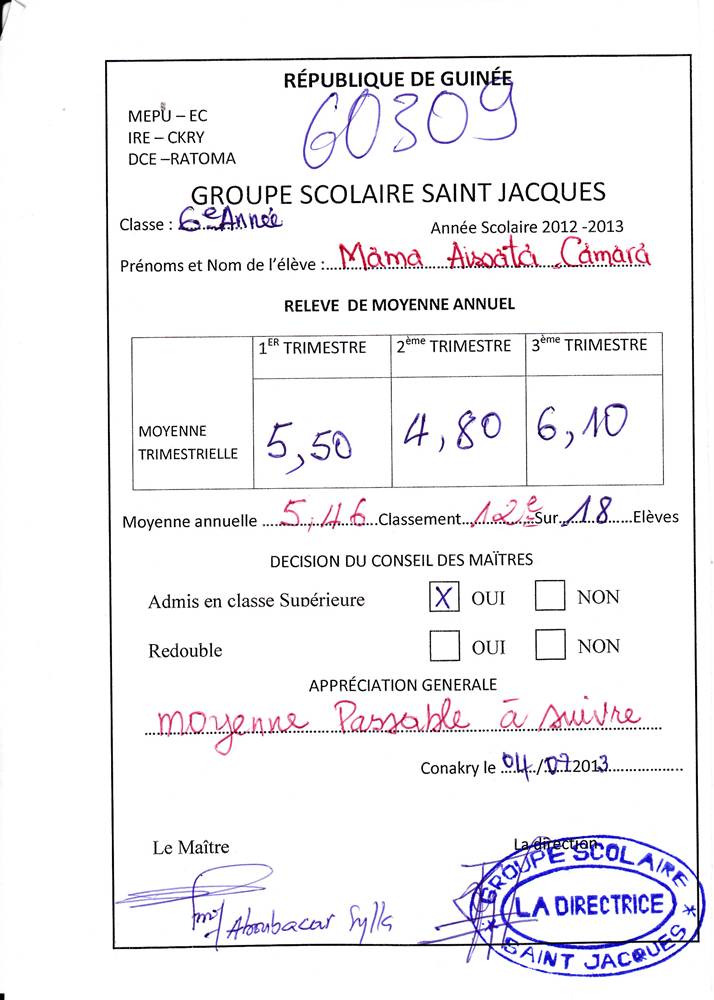 RÉPUBLIQUE DE GUINÉE
60309
MEPU – EC
IRE – CKRY
DCE –RATOMA
GROUPE SCOLAIRE SAINT JACQUES
Classe : 6e Année
Année Scolaire 2012 -2013
Prénoms et Nom de l'élève : Mama Aissata Camara
RELEVE DE MOYENNE ANNUEL
1ER TRIMESTRE 2ème TRIMESTRE 3ème TRIMESTRE
MOYENNE TRIMESTRIELLE 5,50 4,80 6,10
Moyenne annuelle 5,46 Classement 12e Sur 18 Elèves
DECISION DU CONSEIL DES MAÏTRES
Admis en classe Supérieure X OUI NON
Redouble OUI NON
APPRÉCIATION GENERALE
moyenne Passable à suivre
Conakry le 04/07 2013
Le Maître
La direction
Mr Aboubacar Sylla
GROUPE SCOLAIRE
LA DIRECTRICE
* SAINT JACQUES *